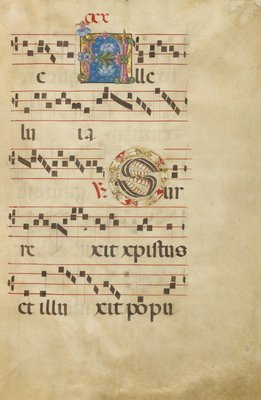 e A lle
lu ia
℣. Sur
re xit xpistus
et illu xit popu